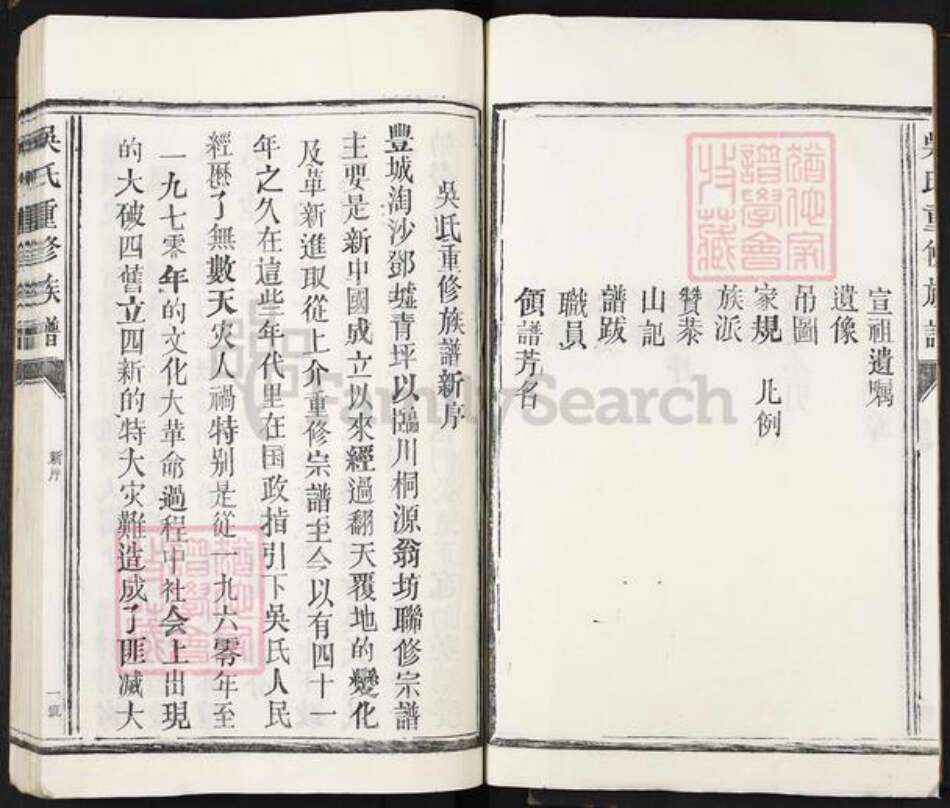 吳氏重修族譜
宣祖遺囑
遺像
吊圖
家規 凡例
族派
贊㤗
山記
譜跋
職員
領譜芳名
吳氏重修族譜新序
豐城淘沙鄧墟青坪以臨川桐源翁坊聯修宗譜
主要是新中國成立以來經過翻天覆地的變化
及革新進取從上介重修宗譜至今以有四十一
年之久在這些年代里在国政指引下吳氏人民
經歷了無數天灾人禍特别是從一九六零年至
一九七零年的文化大革命過程中社会上出現
的大破四舊立四新的特大灾難造成了匪減大
吳氏重修族譜
新序
一頁
猶他家譜學會收藏
猶他家譜學會收藏
FamilySearch